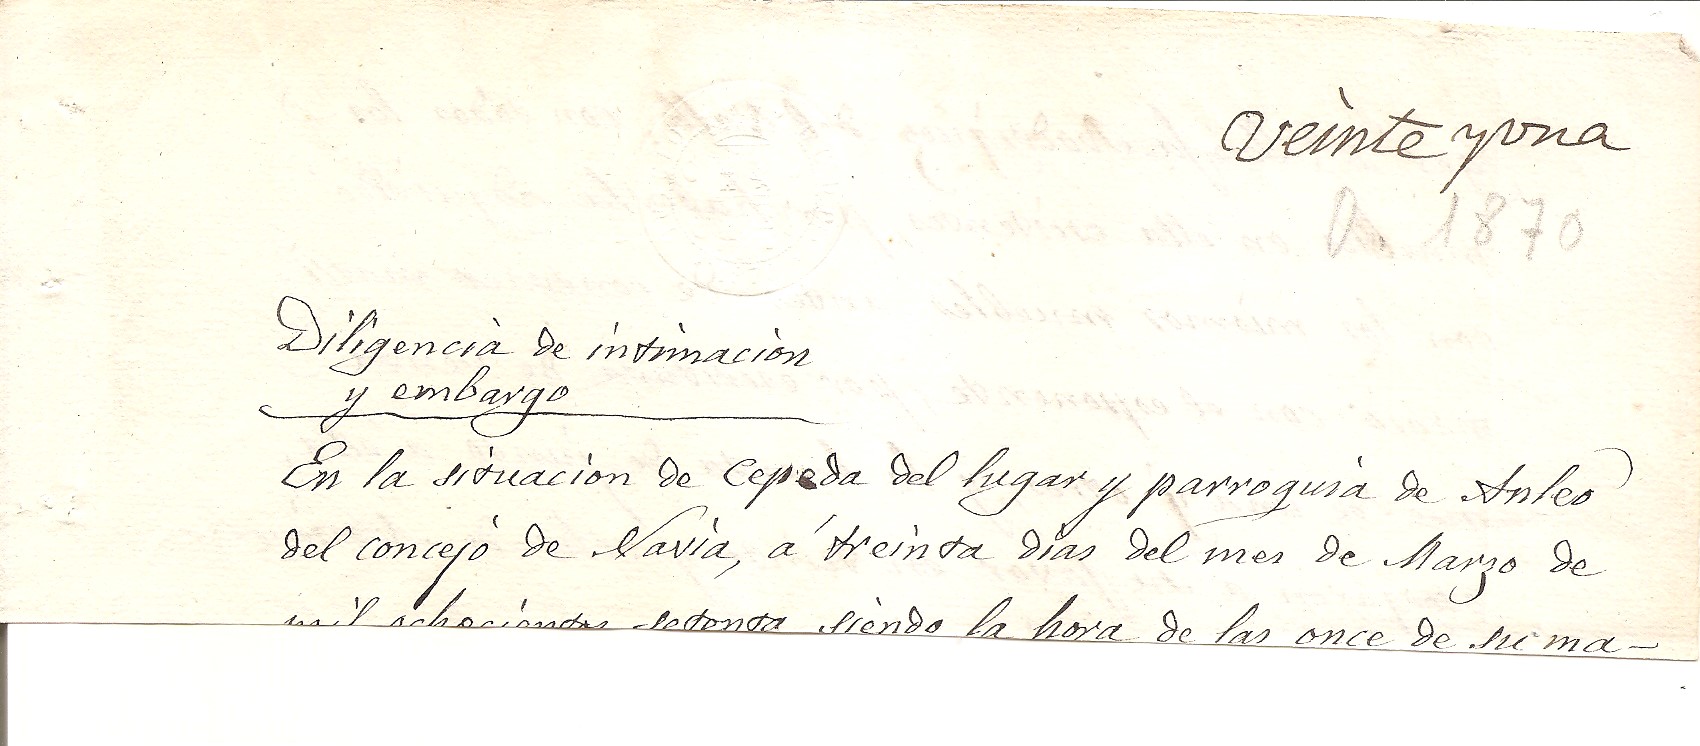 veinte y una
1870
Diligencia de intimacion
y embargo
En la situacion de Cepeda del lugar y parroquia de Anleo
del concejo de Navia, á treinta dias del mes de Marzo de
mil ochocientos setenta siendo la hora de las once de su ma-